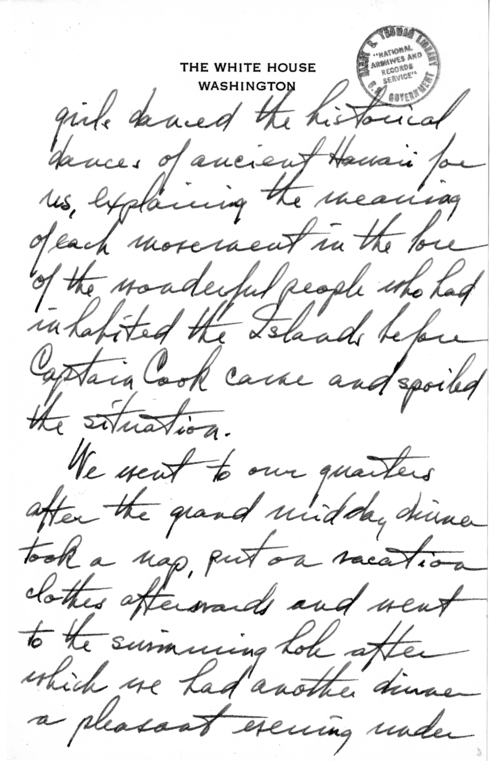 THE WHITE HOUSE
WASHINGTON
HARRY S. TRUMAN LIBRARY
"NATIONAL
ARCHIVES AND
RECORDS
SERVICE"
U.S. GOVERNMENT
girls danced the historical
dances of ancient Hawaii for
us, explaining the meaning
of each movement in the lore
of the wonderful people who had
inhabited the Islands before
Captain Cook came and spoiled
the situation.
We went to our quarters
after the grand midday dinner
took a nap, put on vacation
clothes afterwards and went
to the swimming hole after
which we had another dinner
a pleasant evening under
3